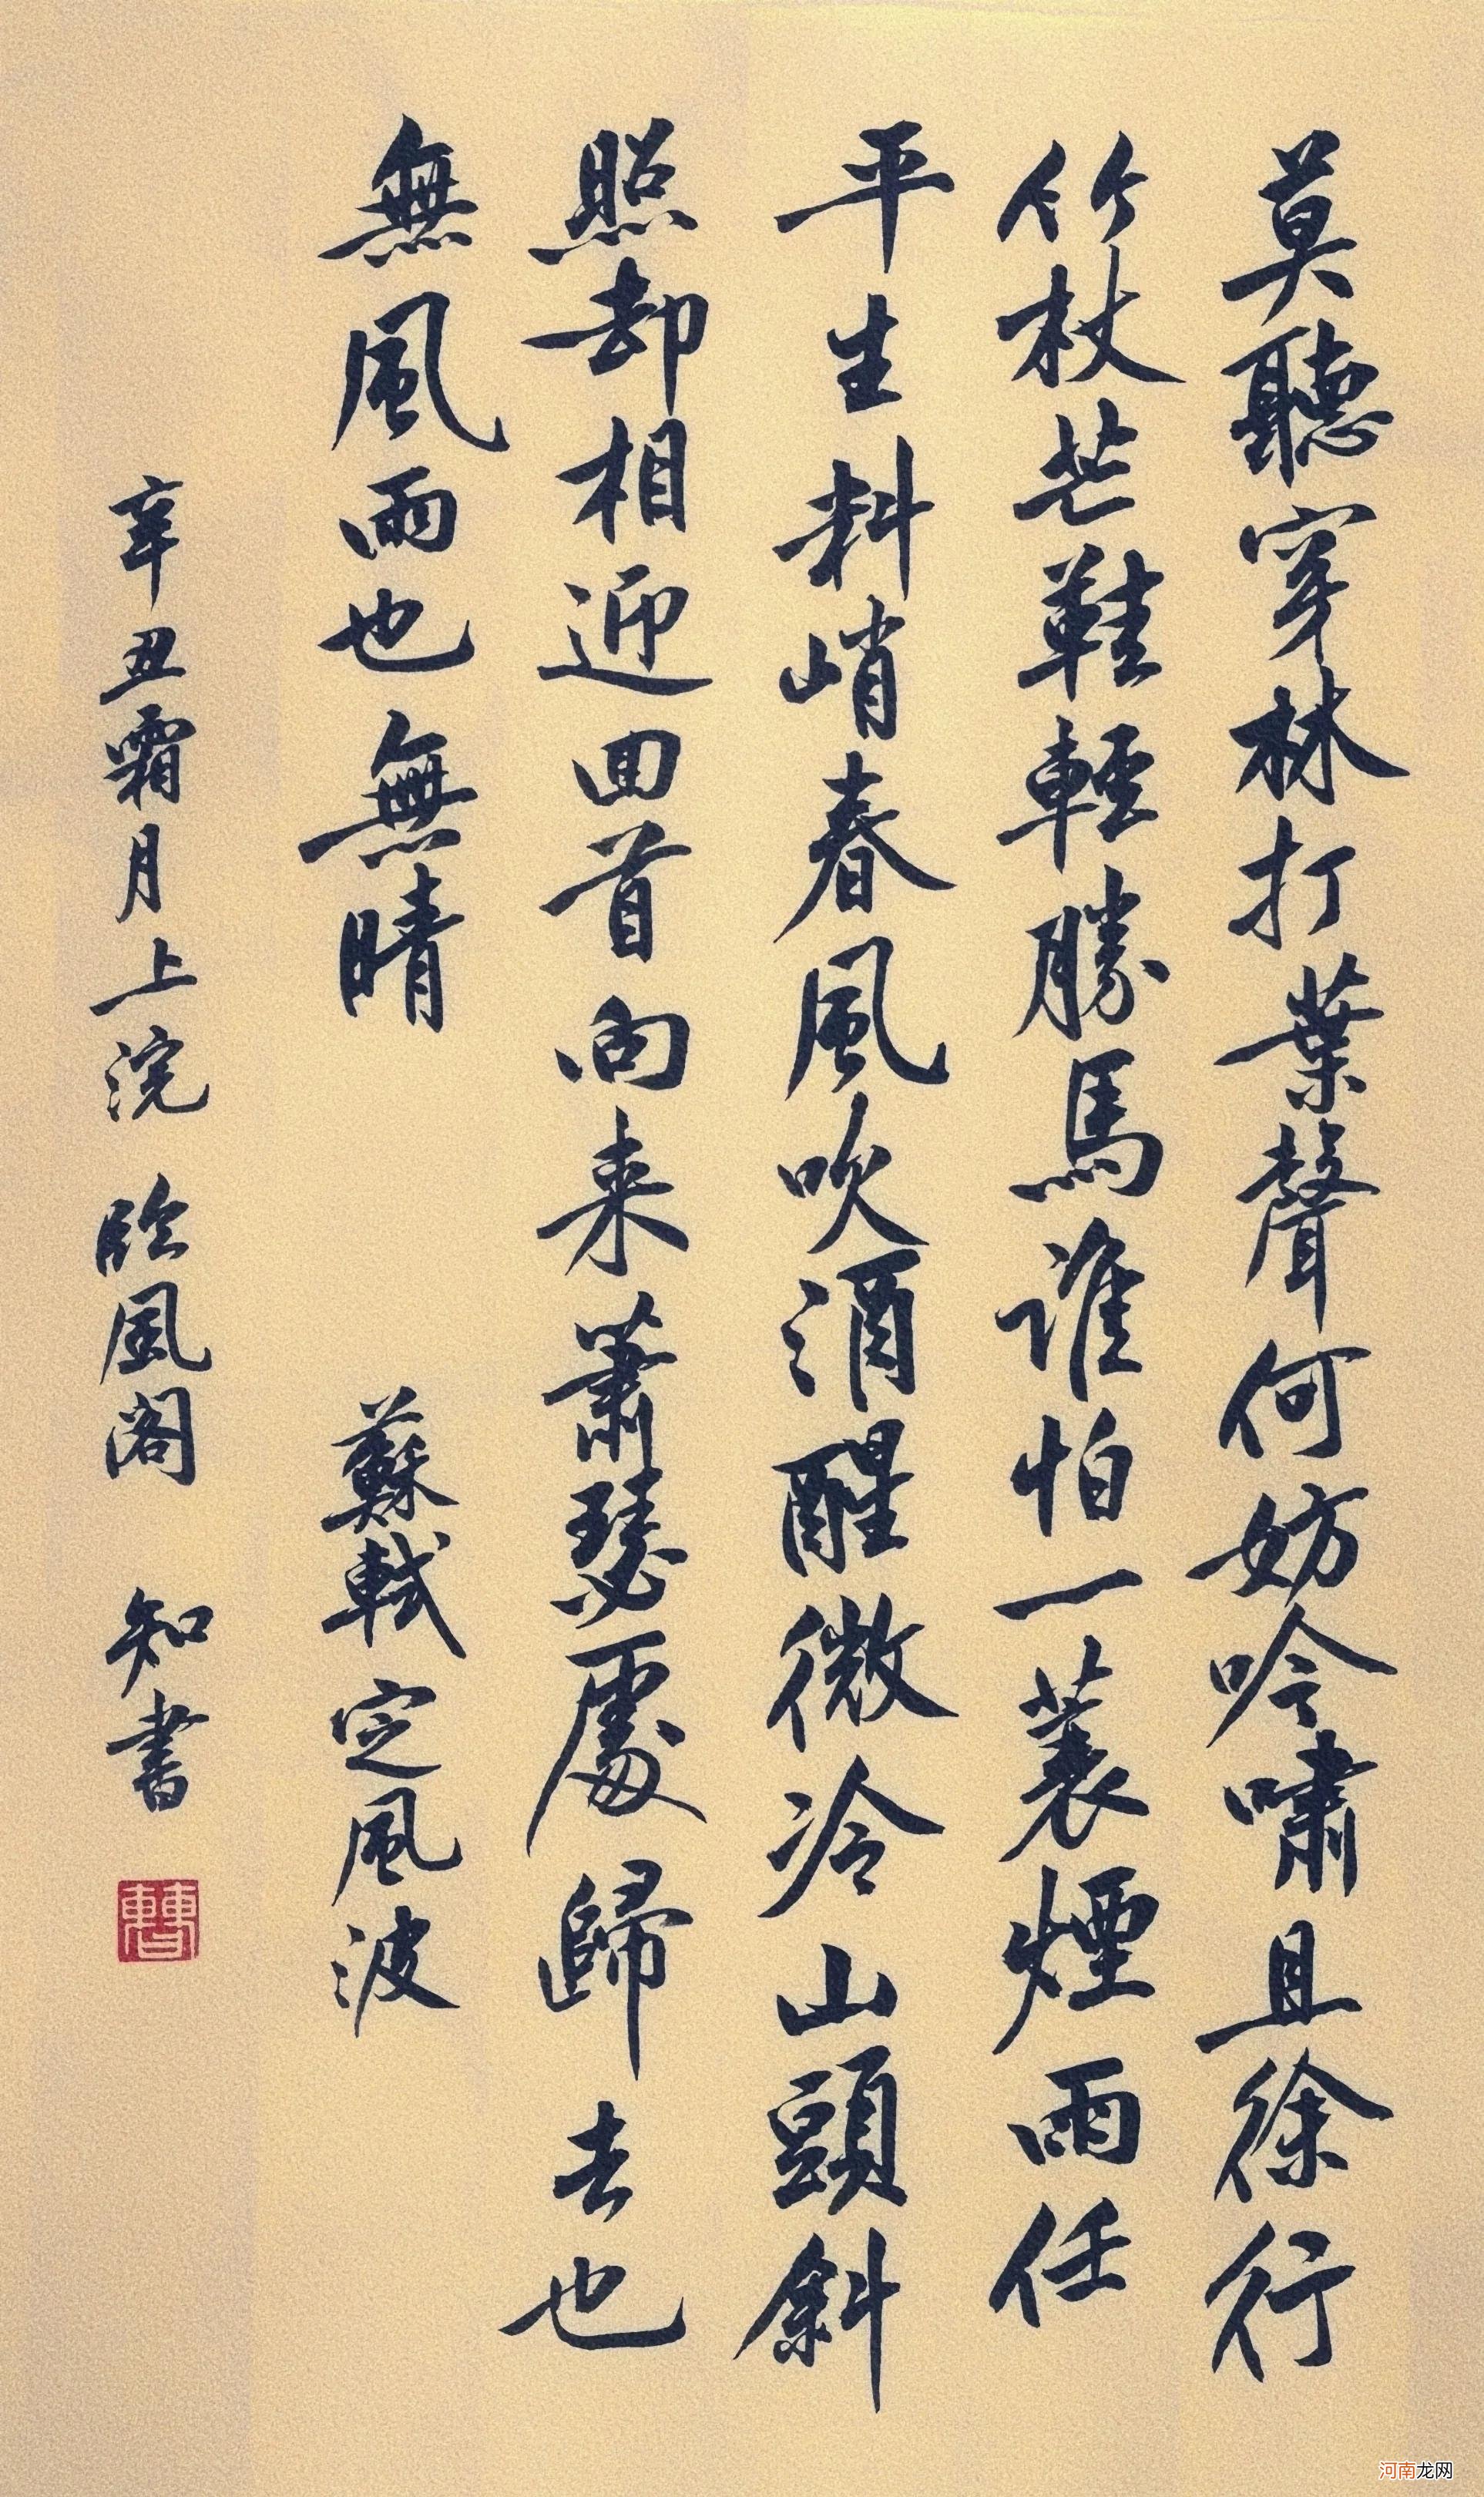 莫聽穿林打葉聲何妨吟嘯且徐行
竹杖芒鞋輕勝馬谁怕一蓑煙雨任
平生料峭春風吹酒醒微冷山頭斜
照却相迎回首向来蕭瑟處歸去也
無風雨也無晴 蘇軾定風波
辛丑霜月上浣 臨風阁 知書
河南龙网